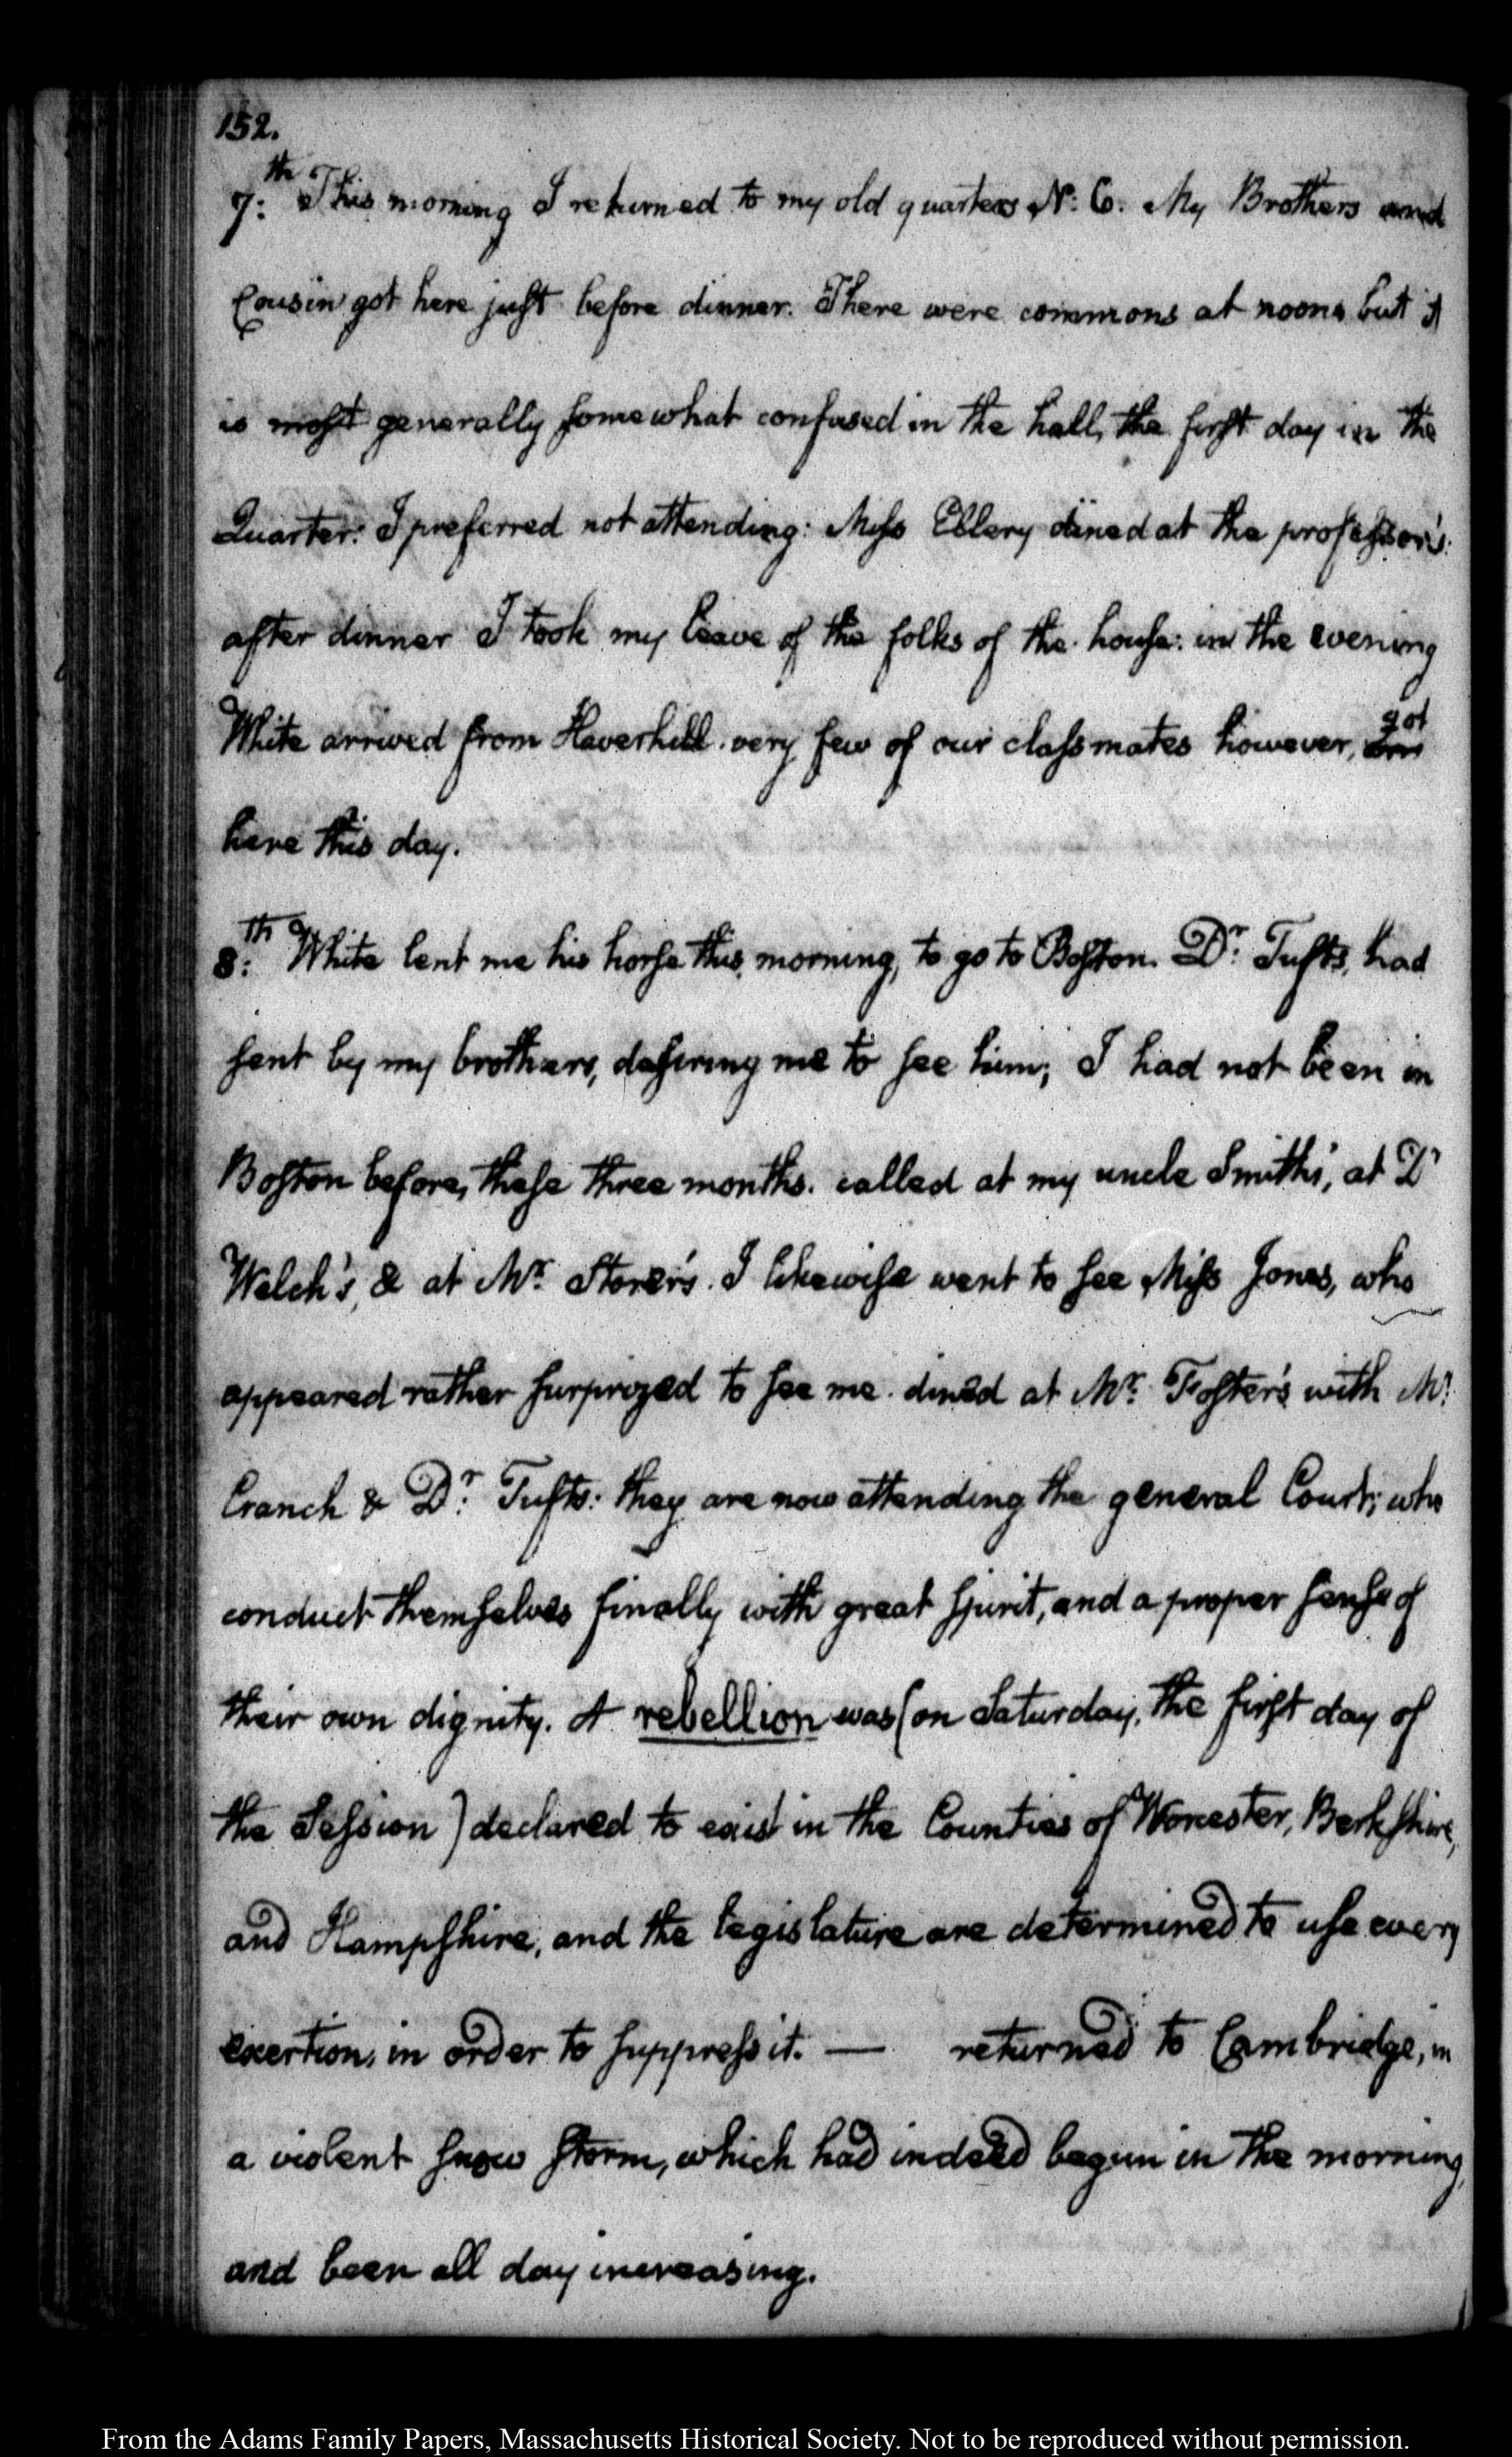 152.
7:th This morning I returned to my old quarters N: 6: My Brothers and
Cousin got here just before dinner. There were commons at noon, but it
is most generally somewhat confused in the hall, the first day in the
Quarter: I preferred not attending: Miss Ellery dined at the professor's:
after dinner I took my leave of the folks of the house: in the evening
White arrived from Haverhill. very few of our classmates however, got
here this day.
8:th White lent me his horse this morning, to go to Boston. Dr: Tufts, had
sent by my brothers, desiring me to see him; I had not been in
Boston before, these three months. called at my uncle Smith's, at Dr
Welch's, & at Mr. Storer's. I likewise went to see Miss Jones, who
appeared rather surprized to see me. dined at Mr. Foster's with Mr.
Cranch & Dr: Tufts: they are now attending the general Court; who
conduct themselves finally with great spirit, and a proper sense of
their own dignity. A rebellion was (on Saturday, the first day of
the Session) declared to exist in the Counties of Worcester, Berkshire,
and Hampshire, and the legislature are determined to use every
exertion, in order to suppress it. — returned to Cambridge, in
a violent snow storm, which had indeed begun in the morning,
and been all day increasing.
From the Adams Family Papers, Massachusetts Historical Society. Not to be reproduced without permission.